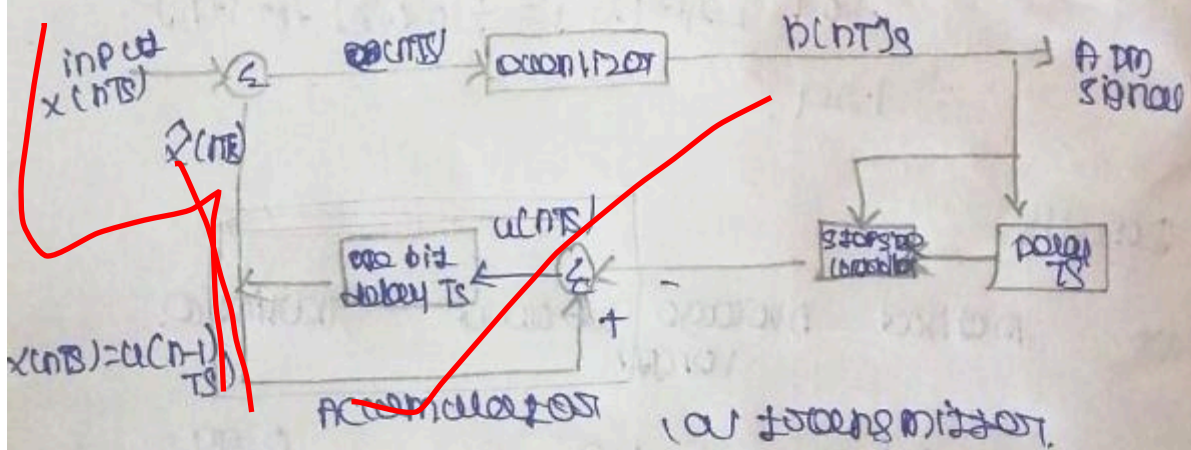 input
x(nTs)
Σ
e(nTs)
Quantizor
b(nT)s
ADM
signal
x̂(nTs)
u(nTs)
one bit
delay Ts
Σ
-
+
Delay
Ts
x(nTs)=u(n-1)
Ts)
Accumulator
(a) transmitter.